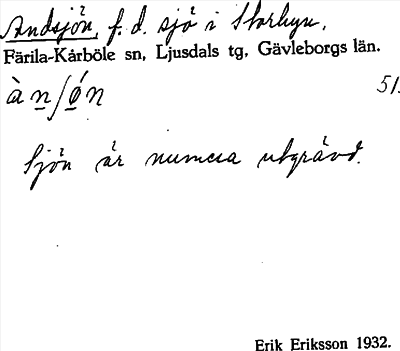 Andsjön, f. d. sjö i Storhyn.
Färila-Kårböle sn, Ljusdals tg, Gävleborgs län.
àn/ǿn
51.
Sjön är numera utgrävd.
Erik Eriksson 1932.